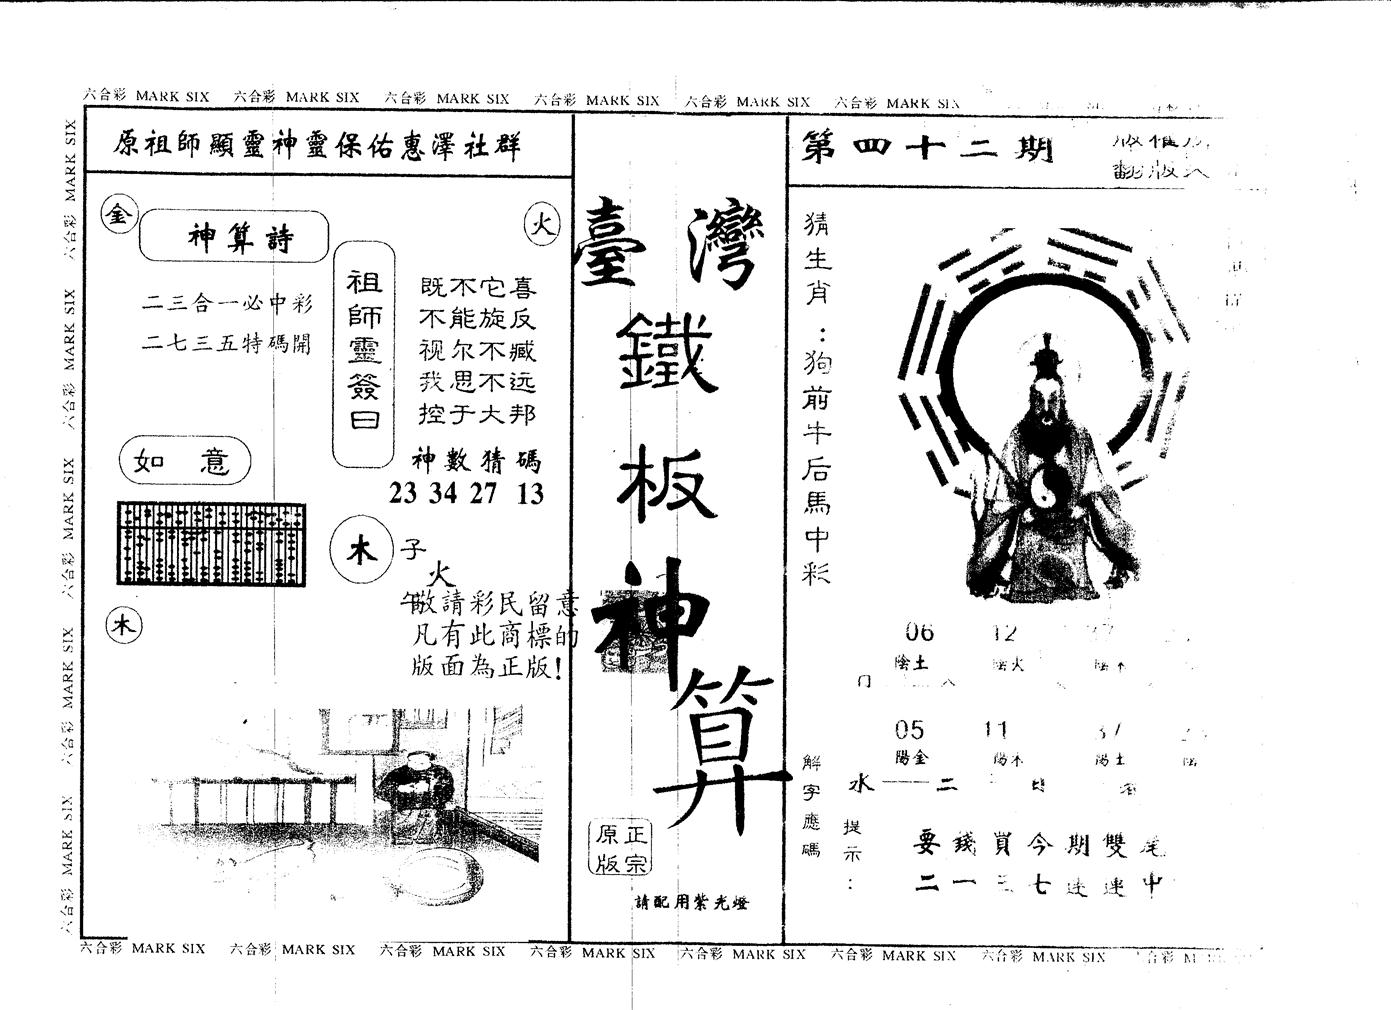 六合彩 MARK SIX 六合彩 MARK SIX 六合彩 MARK SIX 六合彩 MARK SIX 六合彩 MARK SIX 六合彩 MARK SIX
六合彩 MARK SIX 六合彩 MARK SIX 六合彩 MARK SIX 六合彩 MARK SIX 六合彩 MARK SIX
原祖師顯靈神靈保佑惠澤社群
金
神算詩
火
二三合一必中彩
二七三五特碼開
祖師靈簽曰
既不它喜
不能旋反
视尔不臧
我思不远
控于大邦
神數猜碼
23 34 27 13
如意
木 子
火
午
敬請彩民留意
凡有此商標的
版面為正版!
木
臺灣
鐵
板
神
算
正宗
原版
請配用紫光燈
第四十二期
版權
翻版
猜生肖：狗前牛后馬中彩
06 12
陰土 陰火 陰木
05 11
陽金 陽木 陽土
解字應碼
水一一二
提示：
要錢買今期雙尾
二一三七連連中
六合彩 MARK SIX 六合彩 MARK SIX 六合彩 MARK SIX 六合彩 MARK SIX 六合彩 MARK SIX 六合彩 MARK SIX 六合彩 MARK SIX 六合彩